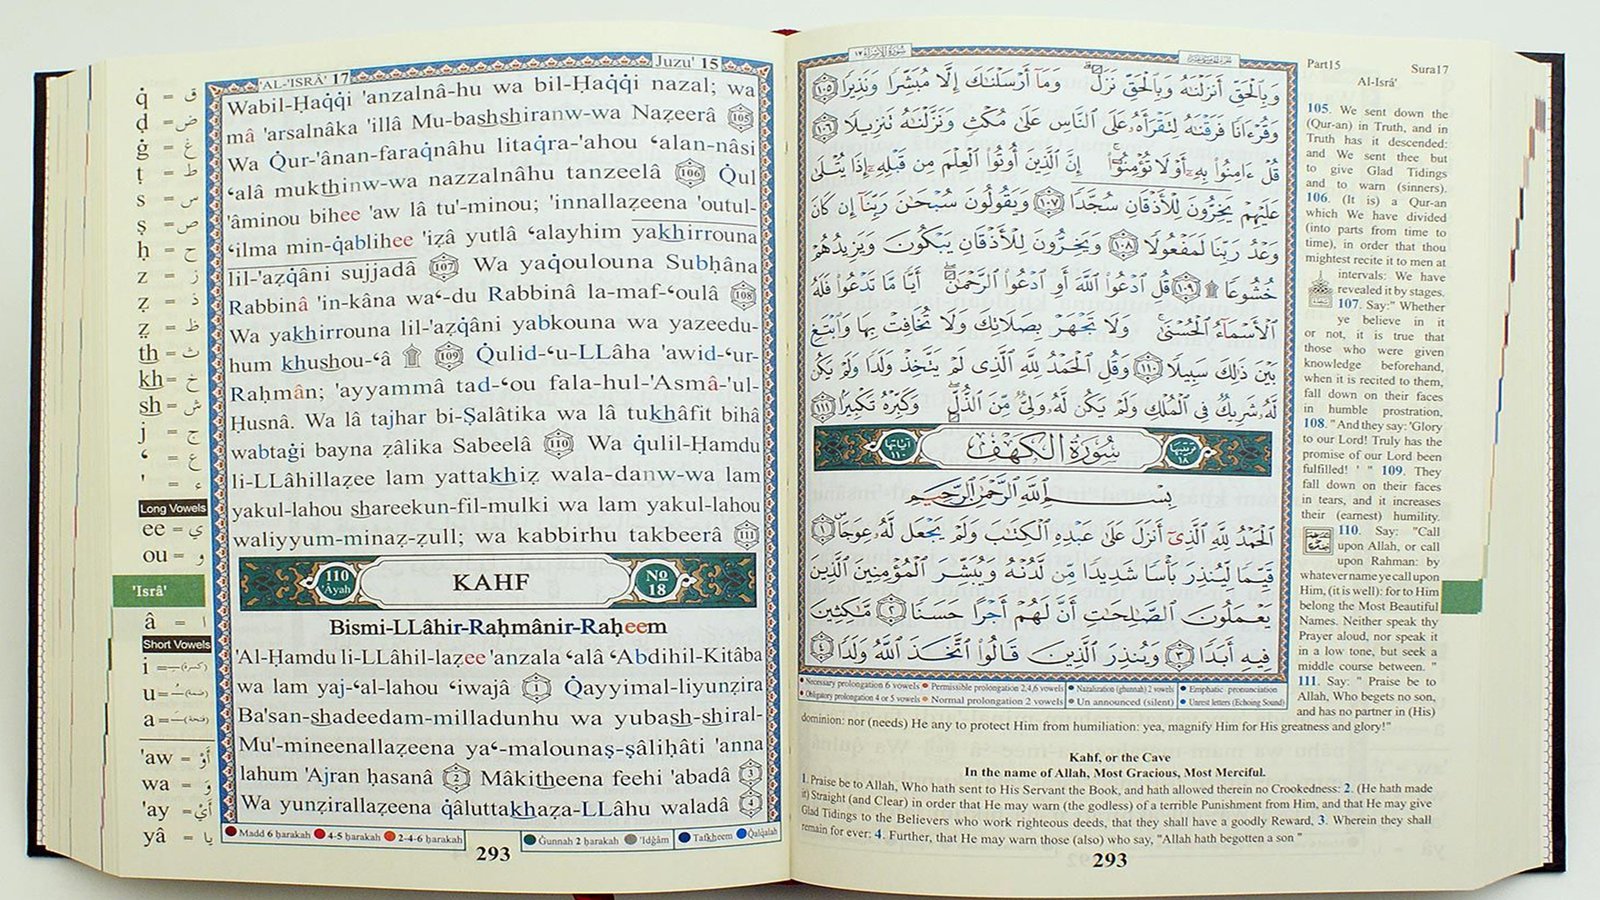 'AL-'ISRÂ' 17
Juzu' 15
Wabil-Ḥaq̇q̇i 'anzalnâ-hu wa bil-Ḥaq̇q̇i nazal; wa
mâ 'arsalnâka 'illâ Mu-bashshiranw-wa Naẓeerâ 105
Wa Q̇ur-'ânan-faraq̇nâhu litaq̇ra-'ahou ‘alan-nâsi
‘alâ mukthinw-wa nazzalnâhu tanzeelâ 106 Q̇ul
'âminou bihee 'aw lâ tu'-minou; 'innallaẓeena 'outul-
‘ilma min-q̇ablihee 'iẓâ yutlâ ‘alayhim yakhirrouna
lil-'aẓq̇âni sujjadâ 107 Wa yaq̇oulouna Subḥâna
Rabbinâ 'in-kâna wa‘-du Rabbinâ la-maf-‘oulâ 108
Wa yakhirrouna lil-'aẓq̇âni yabkouna wa yazeedu-
hum khushou-‘â ۩ 109 Q̇ulid-‘u-LLâha 'awid-‘ur-
Raḥmân; 'ayyammâ tad-‘ou fala-hul-'Asmâ-'ul-
Ḥusnâ. Wa lâ tajhar bi-Ṣalâtika wa lâ tukhâfit bihâ
wabtaġi bayna ẓâlika Sabeelâ 110 Wa q̇ulil-Ḥamdu
li-LLâhillaẓee lam yattakhiẓ wala-danw-wa lam
yakul-lahou shareekun-fil-mulki wa lam yakul-lahou
waliyyum-minaẓ-ẓull; wa kabbirhu takbeerâ 111
110 Ayah
KAHF
No 18
Bismi-LLâhir-Raḥmânir-Raḥeem
'Al-Ḥamdu li-LLâhil-laẓee 'anzala ‘alâ ‘Abdihil-Kitâba
wa lam yaj-‘al-lahou ‘iwajâ 1 Q̇ayyimal-liyunẓira
Ba'san-shadeedam-milladunhu wa yubash-shiral-
Mu'-mineenallaẓeena ya‘-malounaṣ-ṣâliḥâti 'anna
lahum 'Ajran ḥasanâ 2 Mâkitheena feehi 'abadâ 3
Wa yunẓirallaẓeena q̇âluttakhaẓa-LLâhu waladâ 4
Madd 6 ḥarakah 4-5 ḥarakah 2-4-6 ḥarakah Ġunnah 2 ḥarakah 'Idġâm Tafkheem Q̇alq̇alah
293
q̇ = ق
ḍ = ض
ġ = غ
ṭ = ط
s = س
ṣ = ص
ḥ = ح
z = ز
ẓ = ذ
ẓ̤ = ظ
th = ث
kh = خ
sh = ش
j = ج
‘ = ع
' = ء
Long Vowels
ee = ي
ou = و
'Isrâ'
â = ا
Short Vowels
i = (كسرة)
u = (ضمة)
a = (فتحة)
'aw = أَوْ
wa = وَ
'ay = أَيْ
yâ = يا
سُورَةُ الإِسْرَاء ١٧
وَبِالْحَقِّ أَنزَلْنَٰهُ وَبِالْحَقِّ نَزَلَ ۗ وَمَآ أَرْسَلْنَٰكَ إِلَّا مُبَشِّرًا وَنَذِيرًا ١٠٥
وَقُرْءَانًا فَرَقْنَٰهُ لِتَقْرَأَهُۥ عَلَى النَّاسِ عَلَىٰ مُكْثٍ وَنَزَّلْنَٰهُ تَنزِيلًا ١٠٦
قُلْ ءَامِنُوا۟ بِهِۦٓ أَوْ لَا تُؤْمِنُوٓا۟ ۚ إِنَّ الَّذِينَ أُوتُوا۟ الْعِلْمَ مِن قَبْلِهِۦٓ إِذَا يُتْلَىٰ
عَلَيْهِمْ يَخِرُّونَ لِلْأَذْقَانِ سُجَّدًا ١٠٧ وَيَقُولُونَ سُبْحَٰنَ رَبِّنَآ إِن كَانَ
وَعْدُ رَبِّنَا لَمَفْعُولًا ١٠٨ وَيَخِرُّونَ لِلْأَذْقَانِ يَبْكُونَ وَيَزِيدُهُمْ
خُشُوعًا ۩ ١٠٩ قُلِ ادْعُوا۟ اللَّهَ أَوِ ادْعُوا۟ الرَّحْمَٰنَ ۖ أَيًّا مَّا تَدْعُوا۟ فَلَهُ
الْأَسْمَآءُ الْحُسْنَىٰ ۚ وَلَا تَجْهَرْ بِصَلَاتِكَ وَلَا تُخَافِتْ بِهَا وَابْتَغِ
بَيْنَ ذَٰلِكَ سَبِيلًا ١١٠ وَقُلِ الْحَمْدُ لِلَّهِ الَّذِى لَمْ يَتَّخِذْ وَلَدًا وَلَمْ يَكُن
لَّهُۥ شَرِيكٌ فِى الْمُلْكِ وَلَمْ يَكُن لَّهُۥ وَلِىٌّ مِّنَ الذُّلِّ ۖ وَكَبِّرْهُ تَكْبِيرًا ١١١
ترتيبها ١٨
سُورَةُ الْكَهْف
آياتها ١١٠
بِسْمِ اللَّهِ الرَّحْمَٰنِ الرَّحِيمِ
الْحَمْدُ لِلَّهِ الَّذِىٓ أَنزَلَ عَلَىٰ عَبْدِهِ الْكِتَٰبَ وَلَمْ يَجْعَل لَّهُۥ عِوَجَا ١
قَيِّمًا لِّيُنذِرَ بَأْسًا شَدِيدًا مِّن لَّدُنْهُ وَيُبَشِّرَ الْمُؤْمِنِينَ الَّذِينَ
يَعْمَلُونَ الصَّٰلِحَٰتِ أَنَّ لَهُمْ أَجْرًا حَسَنًا ٢ مَّٰكِثِينَ
فِيهِ أَبَدًا ٣ وَيُنذِرَ الَّذِينَ قَالُوا۟ اتَّخَذَ اللَّهُ وَلَدًا ٤
Necessary prolongation 6 vowels Permissible prolongation 2,4,6 vowels Nazalization (ghunnah) 2 vowels Emphatic pronunciation
Obligatory prolongation 4 or 5 vowels Normal prolongation 2 vowels Un announced (silent) Unrest letters (Echoing Sound)
Part15 Sura17
Al-Isrâ'
105. We sent down the
(Qur-an) in Truth, and in
Truth has it descended:
and We sent thee but
to give Glad Tidings
and to warn (sinners).
106. (It is) a Qur-an
which We have divided
(into parts from time to
time), in order that thou
mightest recite it to men at
intervals: We have
revealed it by stages.
107. Say:" Whether
ye believe in it
or not, it is true that
those who were given
knowledge beforehand,
when it is recited to them,
fall down on their faces
in humble prostration,
108. " And they say: 'Glory
to our Lord! Truly has the
promise of our Lord been
fulfilled! ' " 109. They
fall down on their faces
in tears, and it increases
their (earnest) humility.
110. Say: "Call
upon Allah, or call
upon Rahman: by
whatever name ye call upon
Him, (it is well): for to Him
belong the Most Beautiful
Names. Neither speak thy
Prayer aloud, nor speak it
in a low tone, but seek a
middle course between. "
111. Say: " Praise be to
Allah, Who begets no son,
and has no partner in (His)
dominion: nor (needs) He any to protect Him from humiliation: yea, magnify Him for His greatness and glory!"
Kahf, or the Cave
In the name of Allah, Most Gracious, Most Merciful.
1. Praise be to Allah, Who hath sent to His Servant the Book, and hath allowed therein no Crookedness: 2. (He hath made
it) Straight (and Clear) in order that He may warn (the godless) of a terrible Punishment from Him, and that He may give
Glad Tidings to the Believers who work righteous deeds, that they shall have a goodly Reward, 3. Wherein they shall
remain for ever: 4. Further, that He may warn those (also) who say, "Allah hath begotten a son "
293